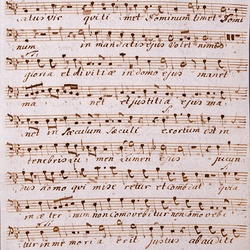 atus vir qui timet Dominum timet Domi
num in mandatis ejus volet nimis
gloria et divitiæ in domo ejus manet
ma net et justitia ejus ma
net in sæculum sæculi exortum est in
tenebris lumen rumen ejus jucun
dus homo qui mise retur et comodat quia
in æter num non comovebitur non comovebi
tur in me moria erit justus ab auditi